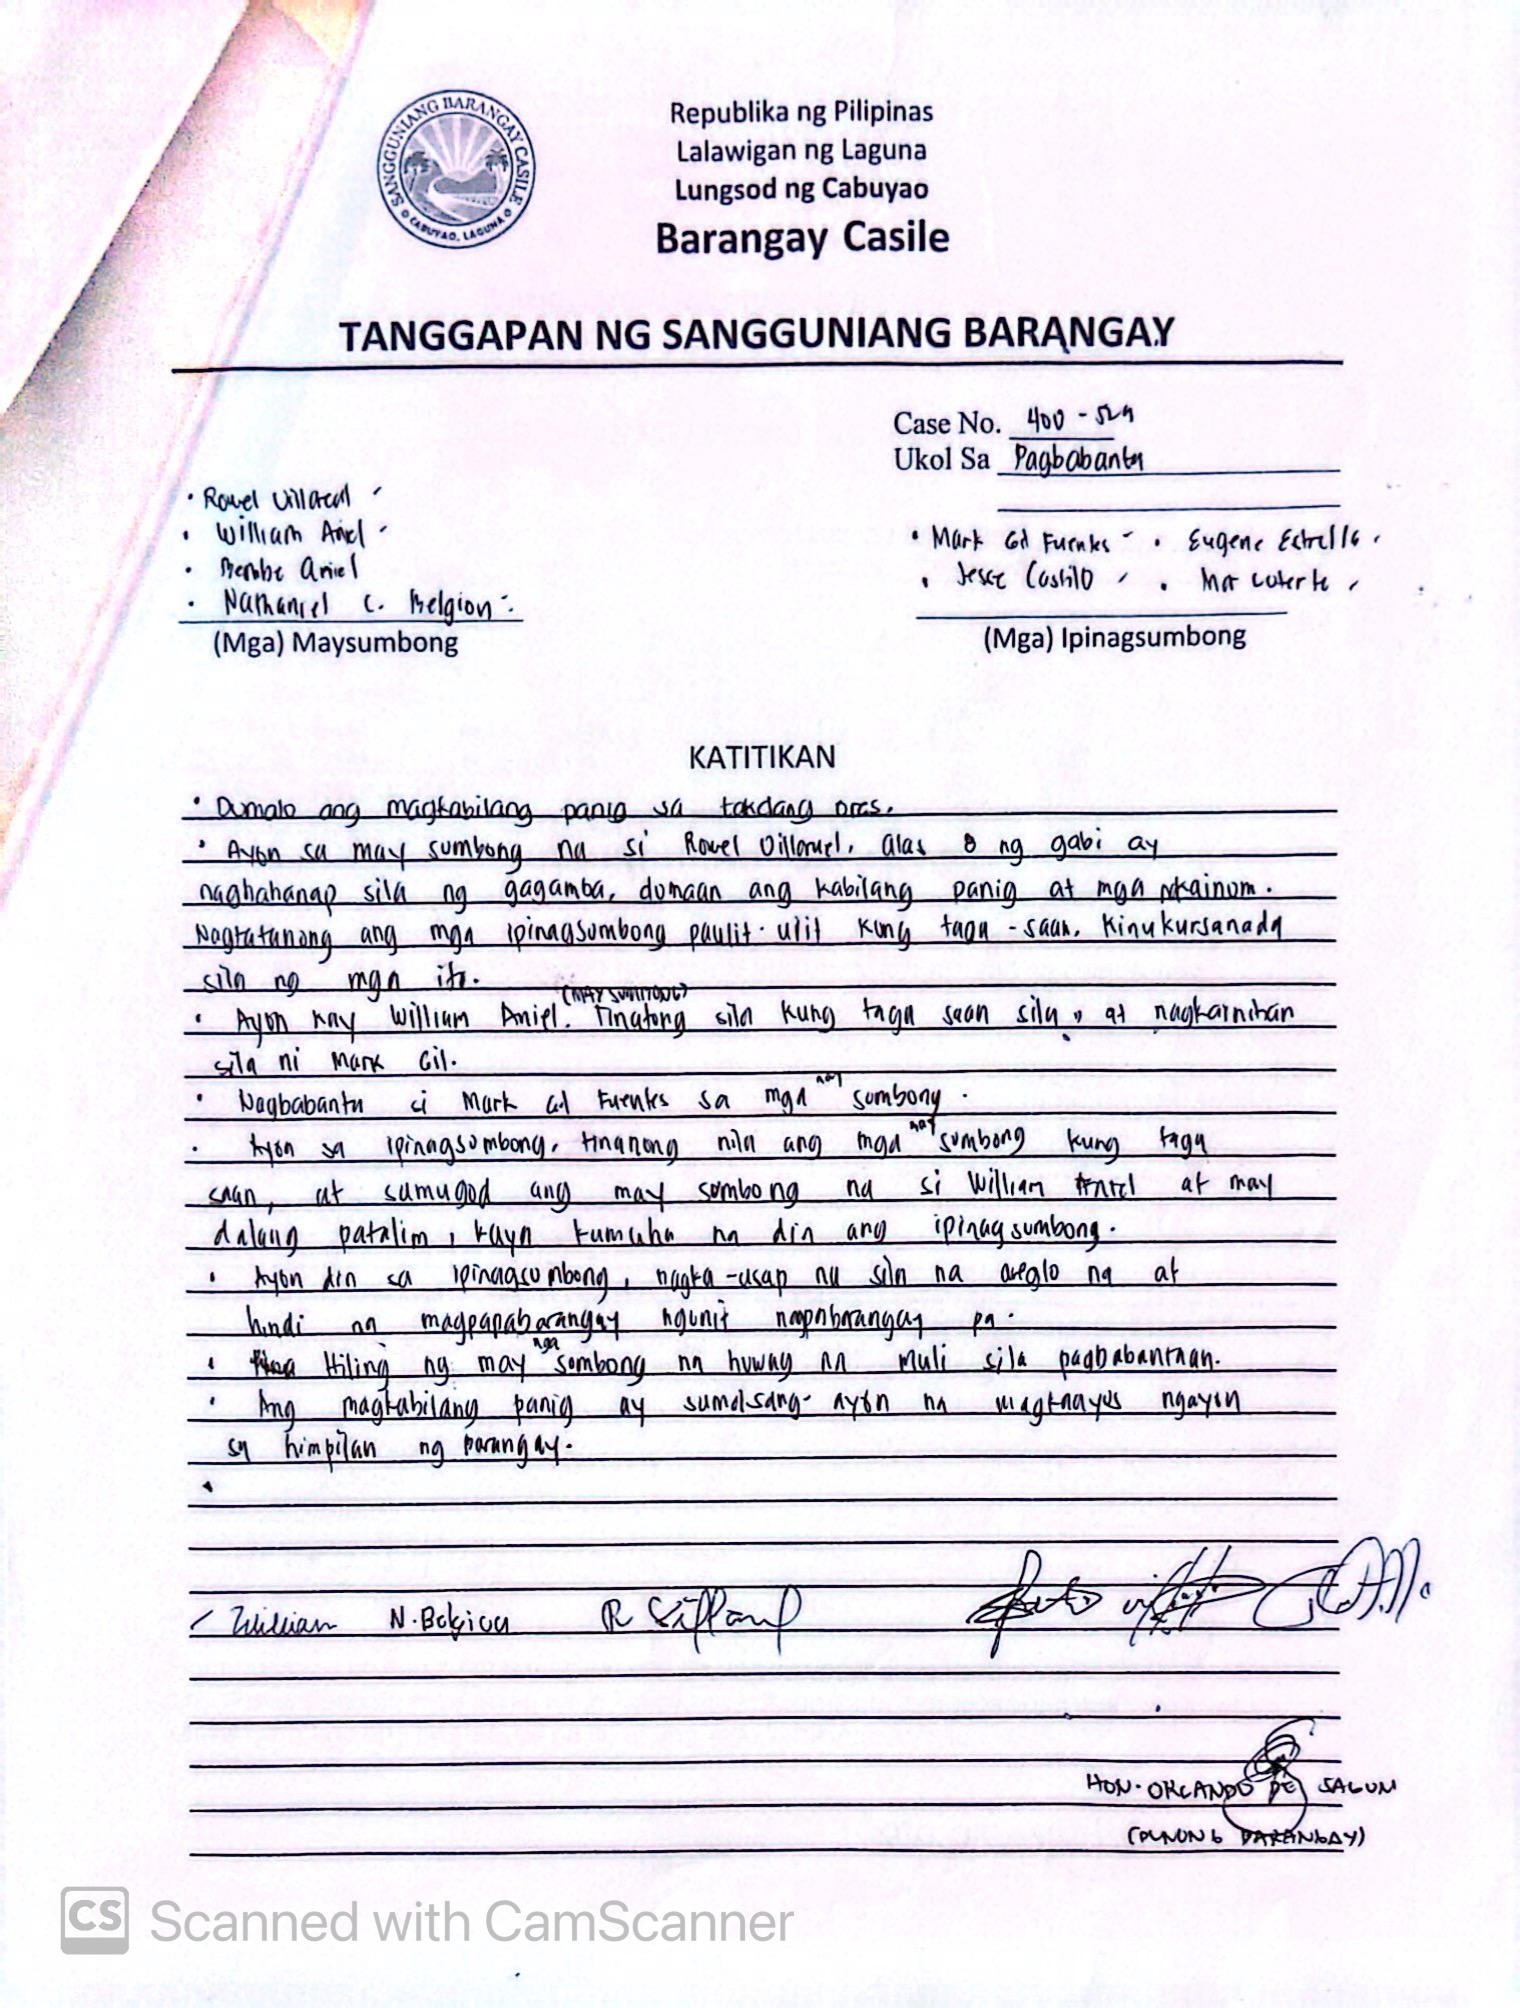 SANGGUNIANG BARANGAY CASILE
CABUYAO, LAGUNA
Republika ng Pilipinas
Lalawigan ng Laguna
Lungsod ng Cabuyao
Barangay Casile
TANGGAPAN NG SANGGUNIANG BARANGAY
Case No. 400 -
Ukol Sa Pagbabanta
• Rowel Villareal
• William Aniel
• Bembe Aniel
• Nathaniel C. Belgion
(Mga) Maysumbong
• Mark Gil Fuentes • Eugene Estrella
• Jesce Costilo • Mar Laterte
(Mga) Ipinagsumbong
KATITIKAN
• Dumalo ang magkabilang panig sa takdang oras.
• Ayon sa may sumbong na si Rowel Villaruel, alas 8 ng gabi ay
naghahanap sila ng gagamba, dumaan ang kabilang panig at mga nkainom.
Nagtatanong ang mga ipinagsumbong paulit-ulit kung taga-saan. Kinukursanada
sila ng mga ito.
• Ayon kay William Aniel. (MAY SUMBONG) Tinatong sila kung taga saan sila, at nagkainitan
sila ni Mark Gil.
• Nagbabanta si Mark Gil Fuentes sa mga may sumbong.
• Ayon sa ipinagsumbong, tinanong nila ang mga may sumbong kung taga
saan, at sumugod ang may sumbong na si William Aniel at may
dalang patalim, kaya kumuha na din ang ipinagsumbong.
• Ayon din sa ipinagsumbong, nagka-usap na sila na areglo na at
hindi na magpapabarangay ngunit napabarangay pa.
• Hiling ng may mga sumbong na huwag na muli sila pagbabantaan.
• Ang magkabilang panig ay sumasang-ayon na magkaayos ngayon
sa himpilan ng barangay.
William N. Belgion R Villaruel
HON. ORLANDO DE SAGUN
(PUNONG BARANGAY)
CS Scanned with CamScanner